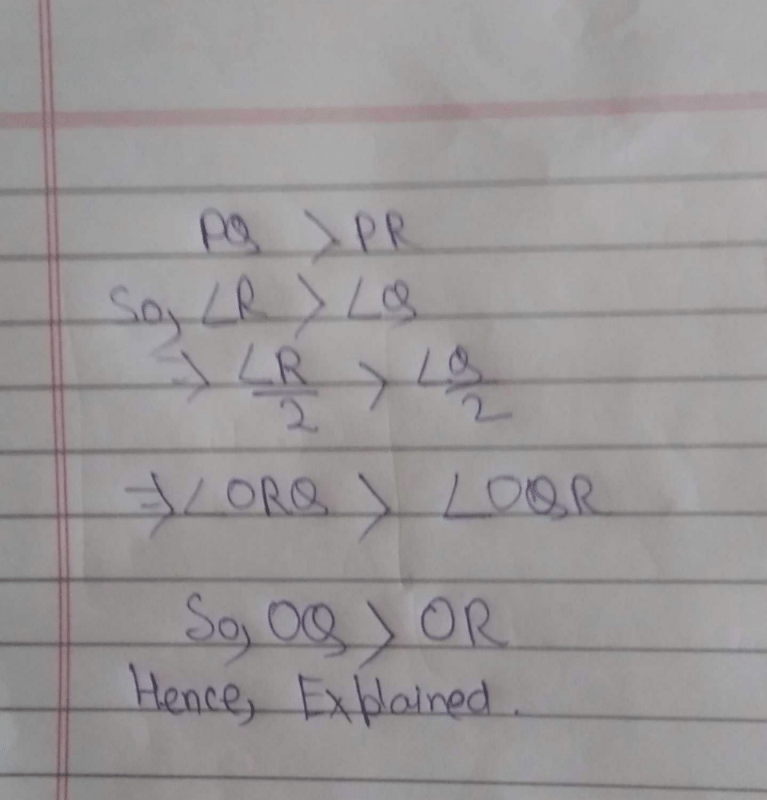 PQ > PR
So, ∠R > ∠Q
⇒ ∠R/2 > ∠Q/2
⇒ ∠ORQ > ∠OQR
So, OQ > OR
Hence, Explained.